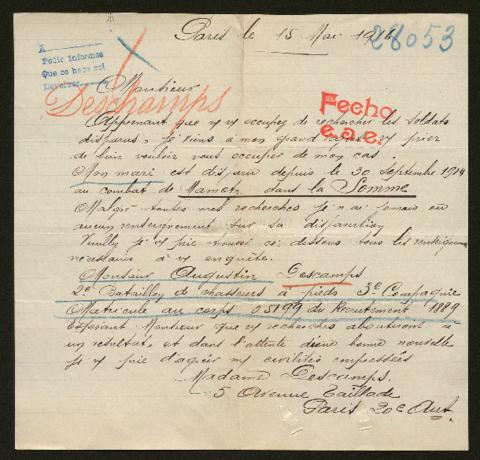 Paris le 15 Mai 1916
28053
Pedir informes
Que se hace así
Monsieur
Deschamps
Fecho
e.a.e.
Apprenant que v/ v/ occupez de rechercher les soldats
disparus, je viens à mon grand regret v/ prier
de bien vouloir vous occuper de mon cas.
Mon mari est disparu depuis le 30 Septembre 1914
au combat de Mametz dans la Somme
Malgré toutes mes recherches je n'ai jamais eu
aucun renseignement sur sa disparition
Veuillez je v/ prie trouver ci dessous tous les renseignem
nécessaires à v/ enquête.
Monsieur Augustin Descamps
2e Bataillon de chasseurs à pieds 3e Compagnie
Matricule au corps 05199 du Recrutement 1889
Espérant Monsieur que v/ recherches aboutiront à
un résultat, et dans l'attente d'une bonne nouvelle
je v/ prie d'agréer m/ civilités empressées
Madame Descamps.
5 Avenue Taillade
Paris 20e Arrt.